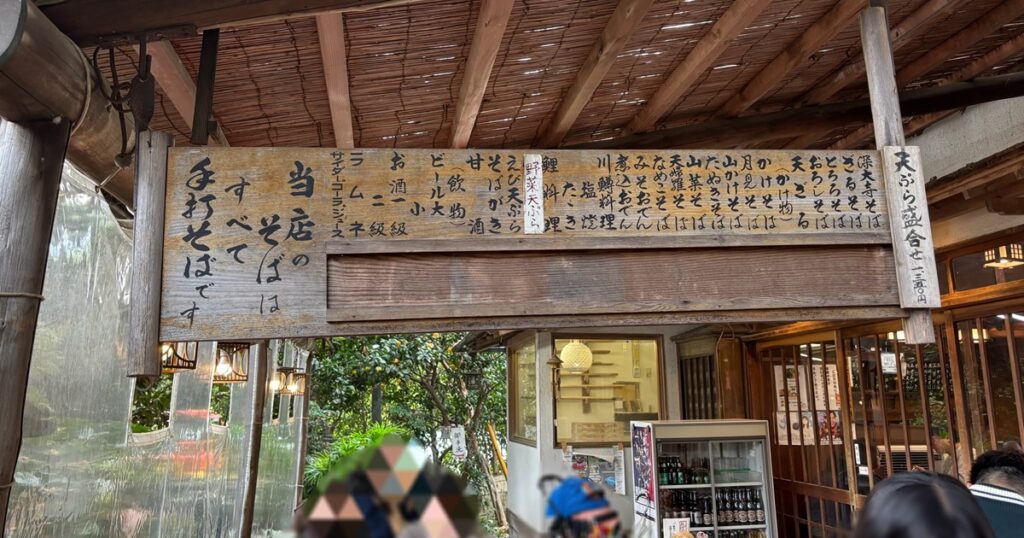 天ぷら盛合せ 一三五〇円
深大寺そば
ざるそば
とろろそば
おろしそば
天ざる
かけ物
かけそば
月見そば
山かけそば
たぬきそば
山菜そば
天婦羅そば
なめこそば
みそおでん
煮込おでん
川鱒料理
塩焼
たゝき
鯉料理
野菜天ぷら
えび天ぷら
そばがき
甘酒
飲物
ビール大
小
お酒一級
二級
ラムネ
サイダー・コーラ・ジュース
当店の
そばは
すべて
手打そばです